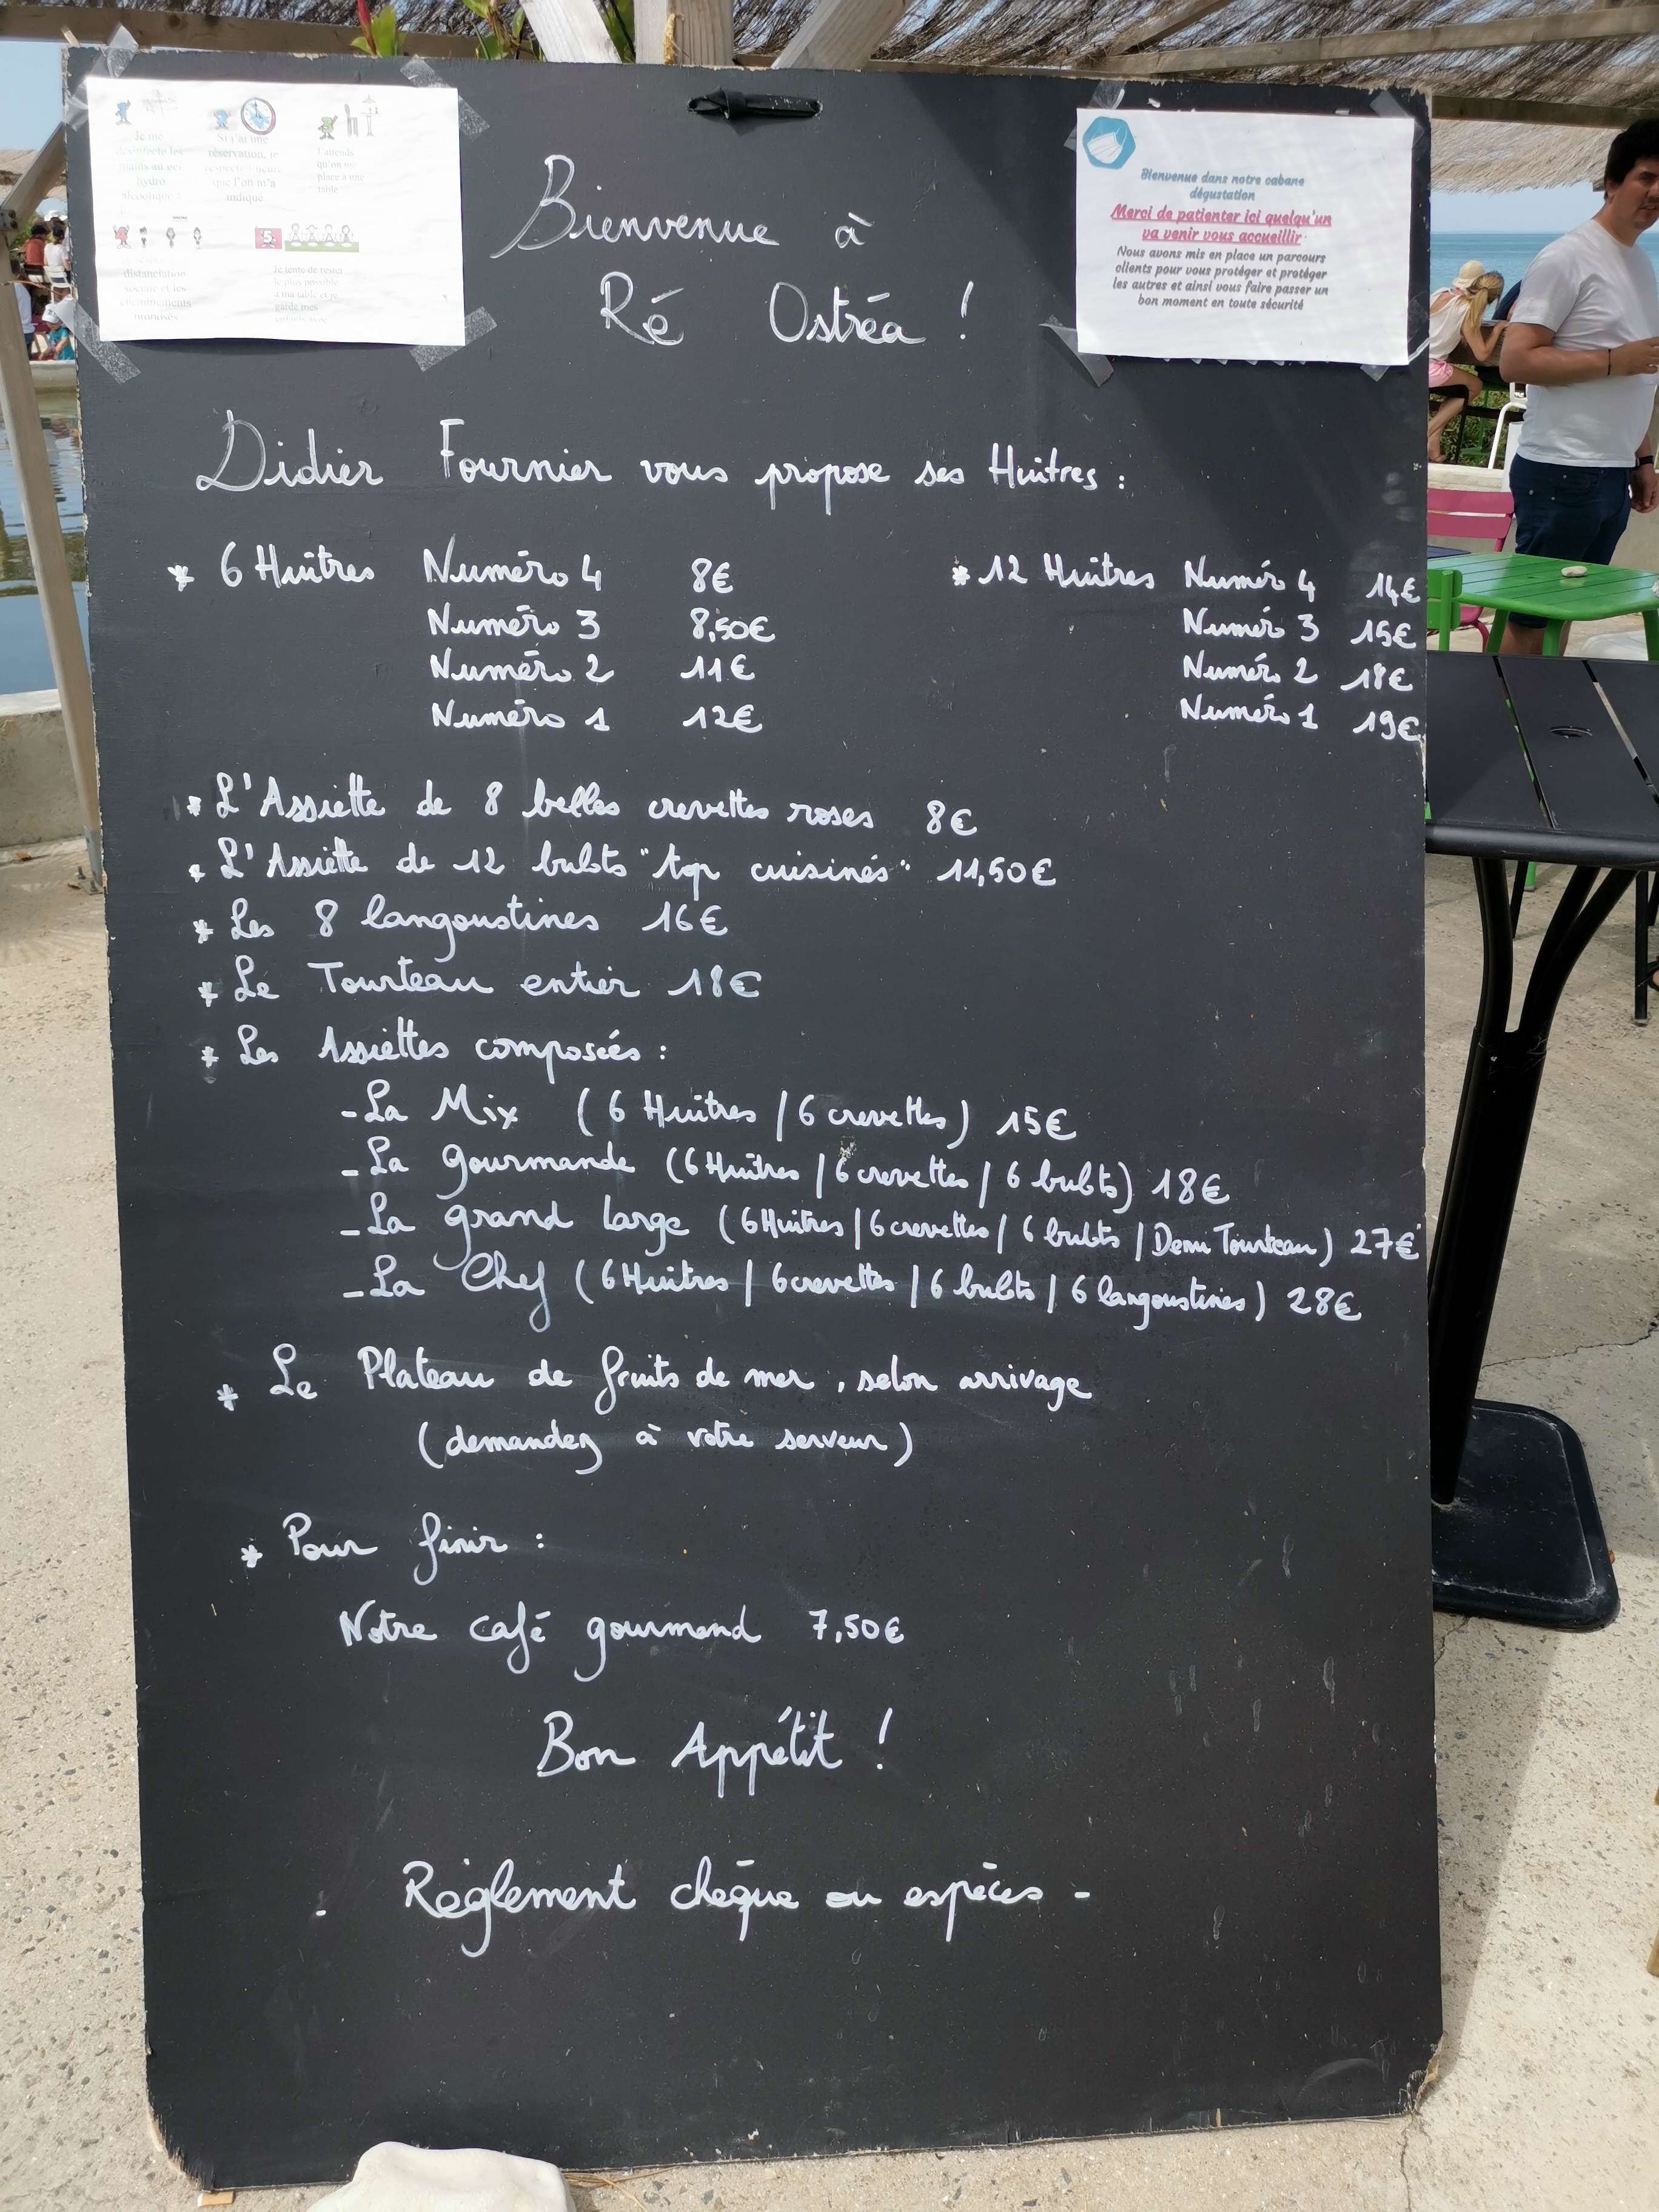 Je me
désinfecte les
mains au gel
hydro
alcoolique
Si j'ai une
réservation, je
respecte l'heure
que l'on m'a
indiqué
J'attends
qu'on me
place à une
table
distanciation
sociale et les
cheminements
proposés
Je tente de rester
le plus possible
à ma table et je
garde mes
Bienvenue dans notre cabane
dégustation
Merci de patienter ici quelqu'un
va venir vous accueillir
Nous avons mis en place un parcours
clients pour vous protéger et protéger
les autres et ainsi vous faire passer un
bon moment en toute sécurité
Bienvenue à
Ré Ostréa !
Didier Fournier vous propose ses Huîtres :
* 6 Huîtres Numéro 4 8€ * 12 Huîtres Numéro 4 14€
Numéro 3 8,50€ Numéro 3 15€
Numéro 2 11€ Numéro 2 18€
Numéro 1 12€ Numéro 1 19€
* L'Assiette de 8 belles crevettes roses 8€
* L'Assiette de 12 bulots "top cuisinés" 11,50€
* Les 8 langoustines 16€
* Le Tourteau entier 18€
* Les Assiettes composées :
- La Mix (6 Huîtres / 6 crevettes) 15€
- La gourmande (6 Huîtres / 6 crevettes / 6 bulots) 18€
- La grand large (6 Huîtres / 6 crevettes / 6 bulots / Demi Tourteau) 27€
- La Chef (6 Huîtres / 6 crevettes / 6 bulots / 6 langoustines) 28€
* Le Plateau de fruits de mer, selon arrivage
(demandez à votre serveur)
* Pour finir :
Notre café gourmand 7,50€
Bon Appétit !
- Règlement chèque ou espèces -